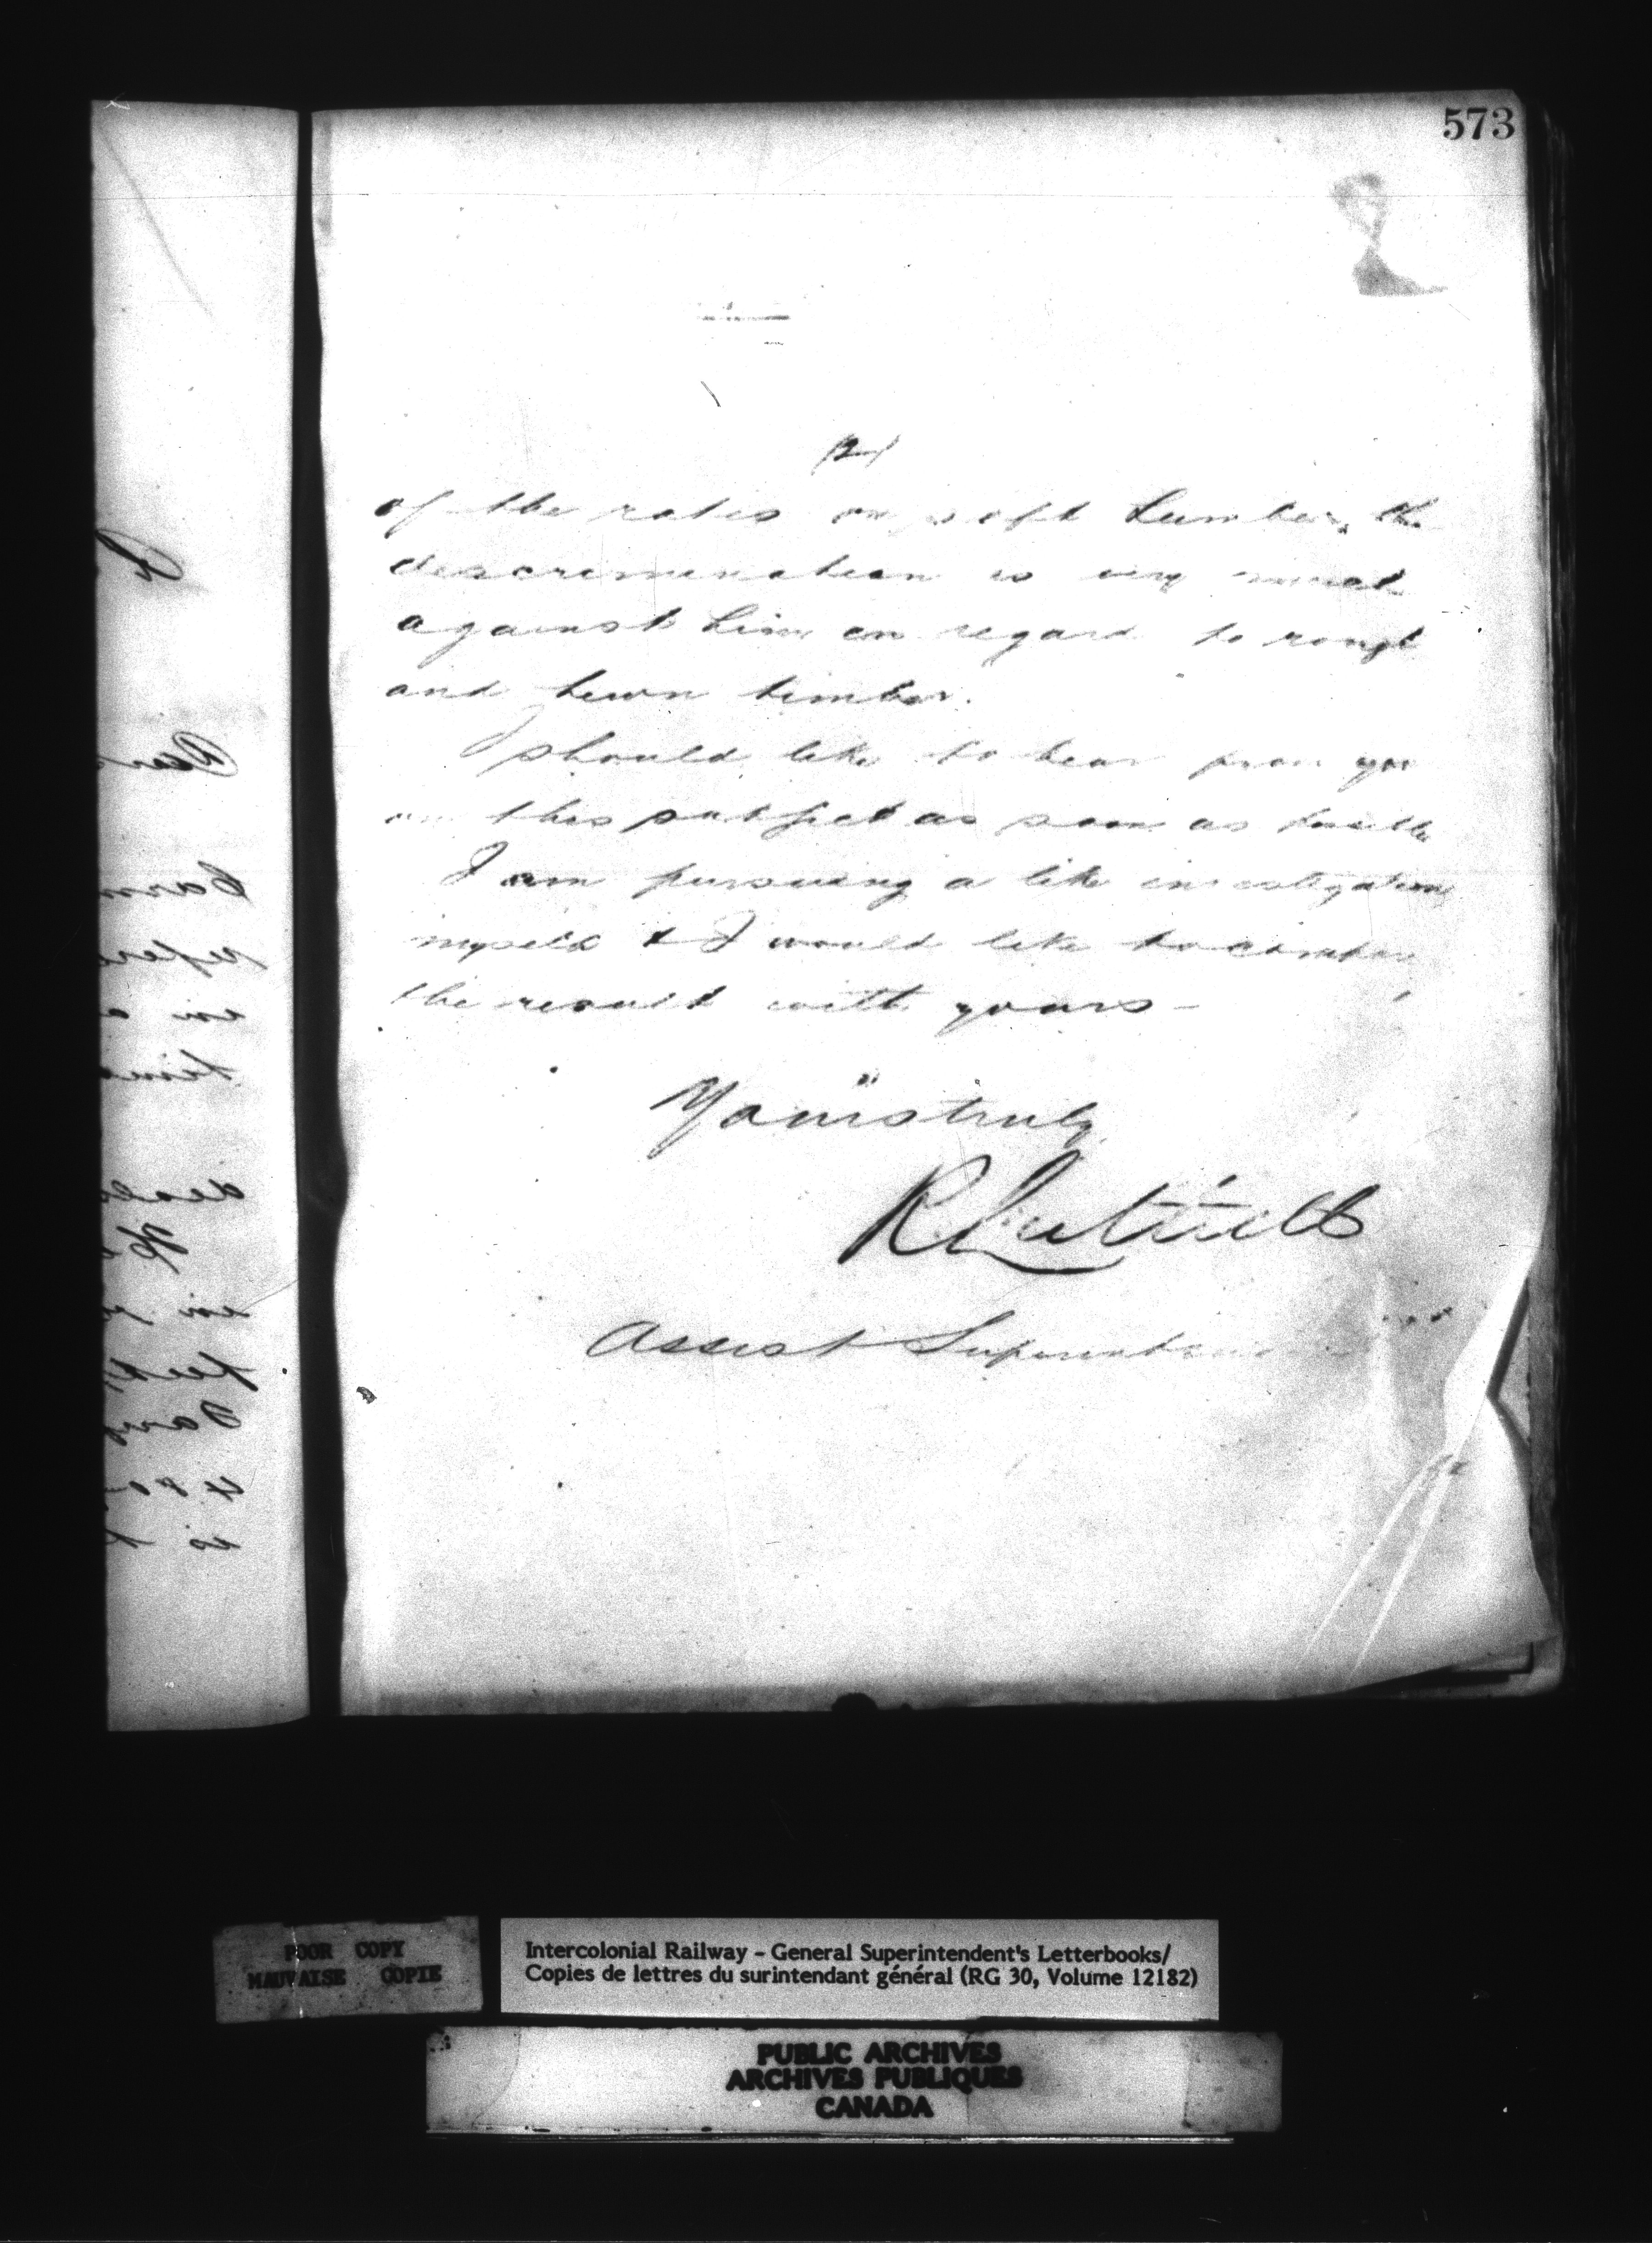 573
/2/
of the rates on soft Lumber, the
discrimination is very much
against him in regard to rough
and hewn timber.
I should like to hear from you
on this subject as soon as
I am pursuing a like investigation
myself & I would like to compare
the result with yours —
Yours truly
R Luttrell
Assist Superintendent
POOR COPY
MAUVAISE COPIE
Intercolonial Railway - General Superintendent's Letterbooks/
Copies de lettres du surintendant général (RG 30, Volume 12182)
PUBLIC ARCHIVES
ARCHIVES PUBLIQUES
CANADA